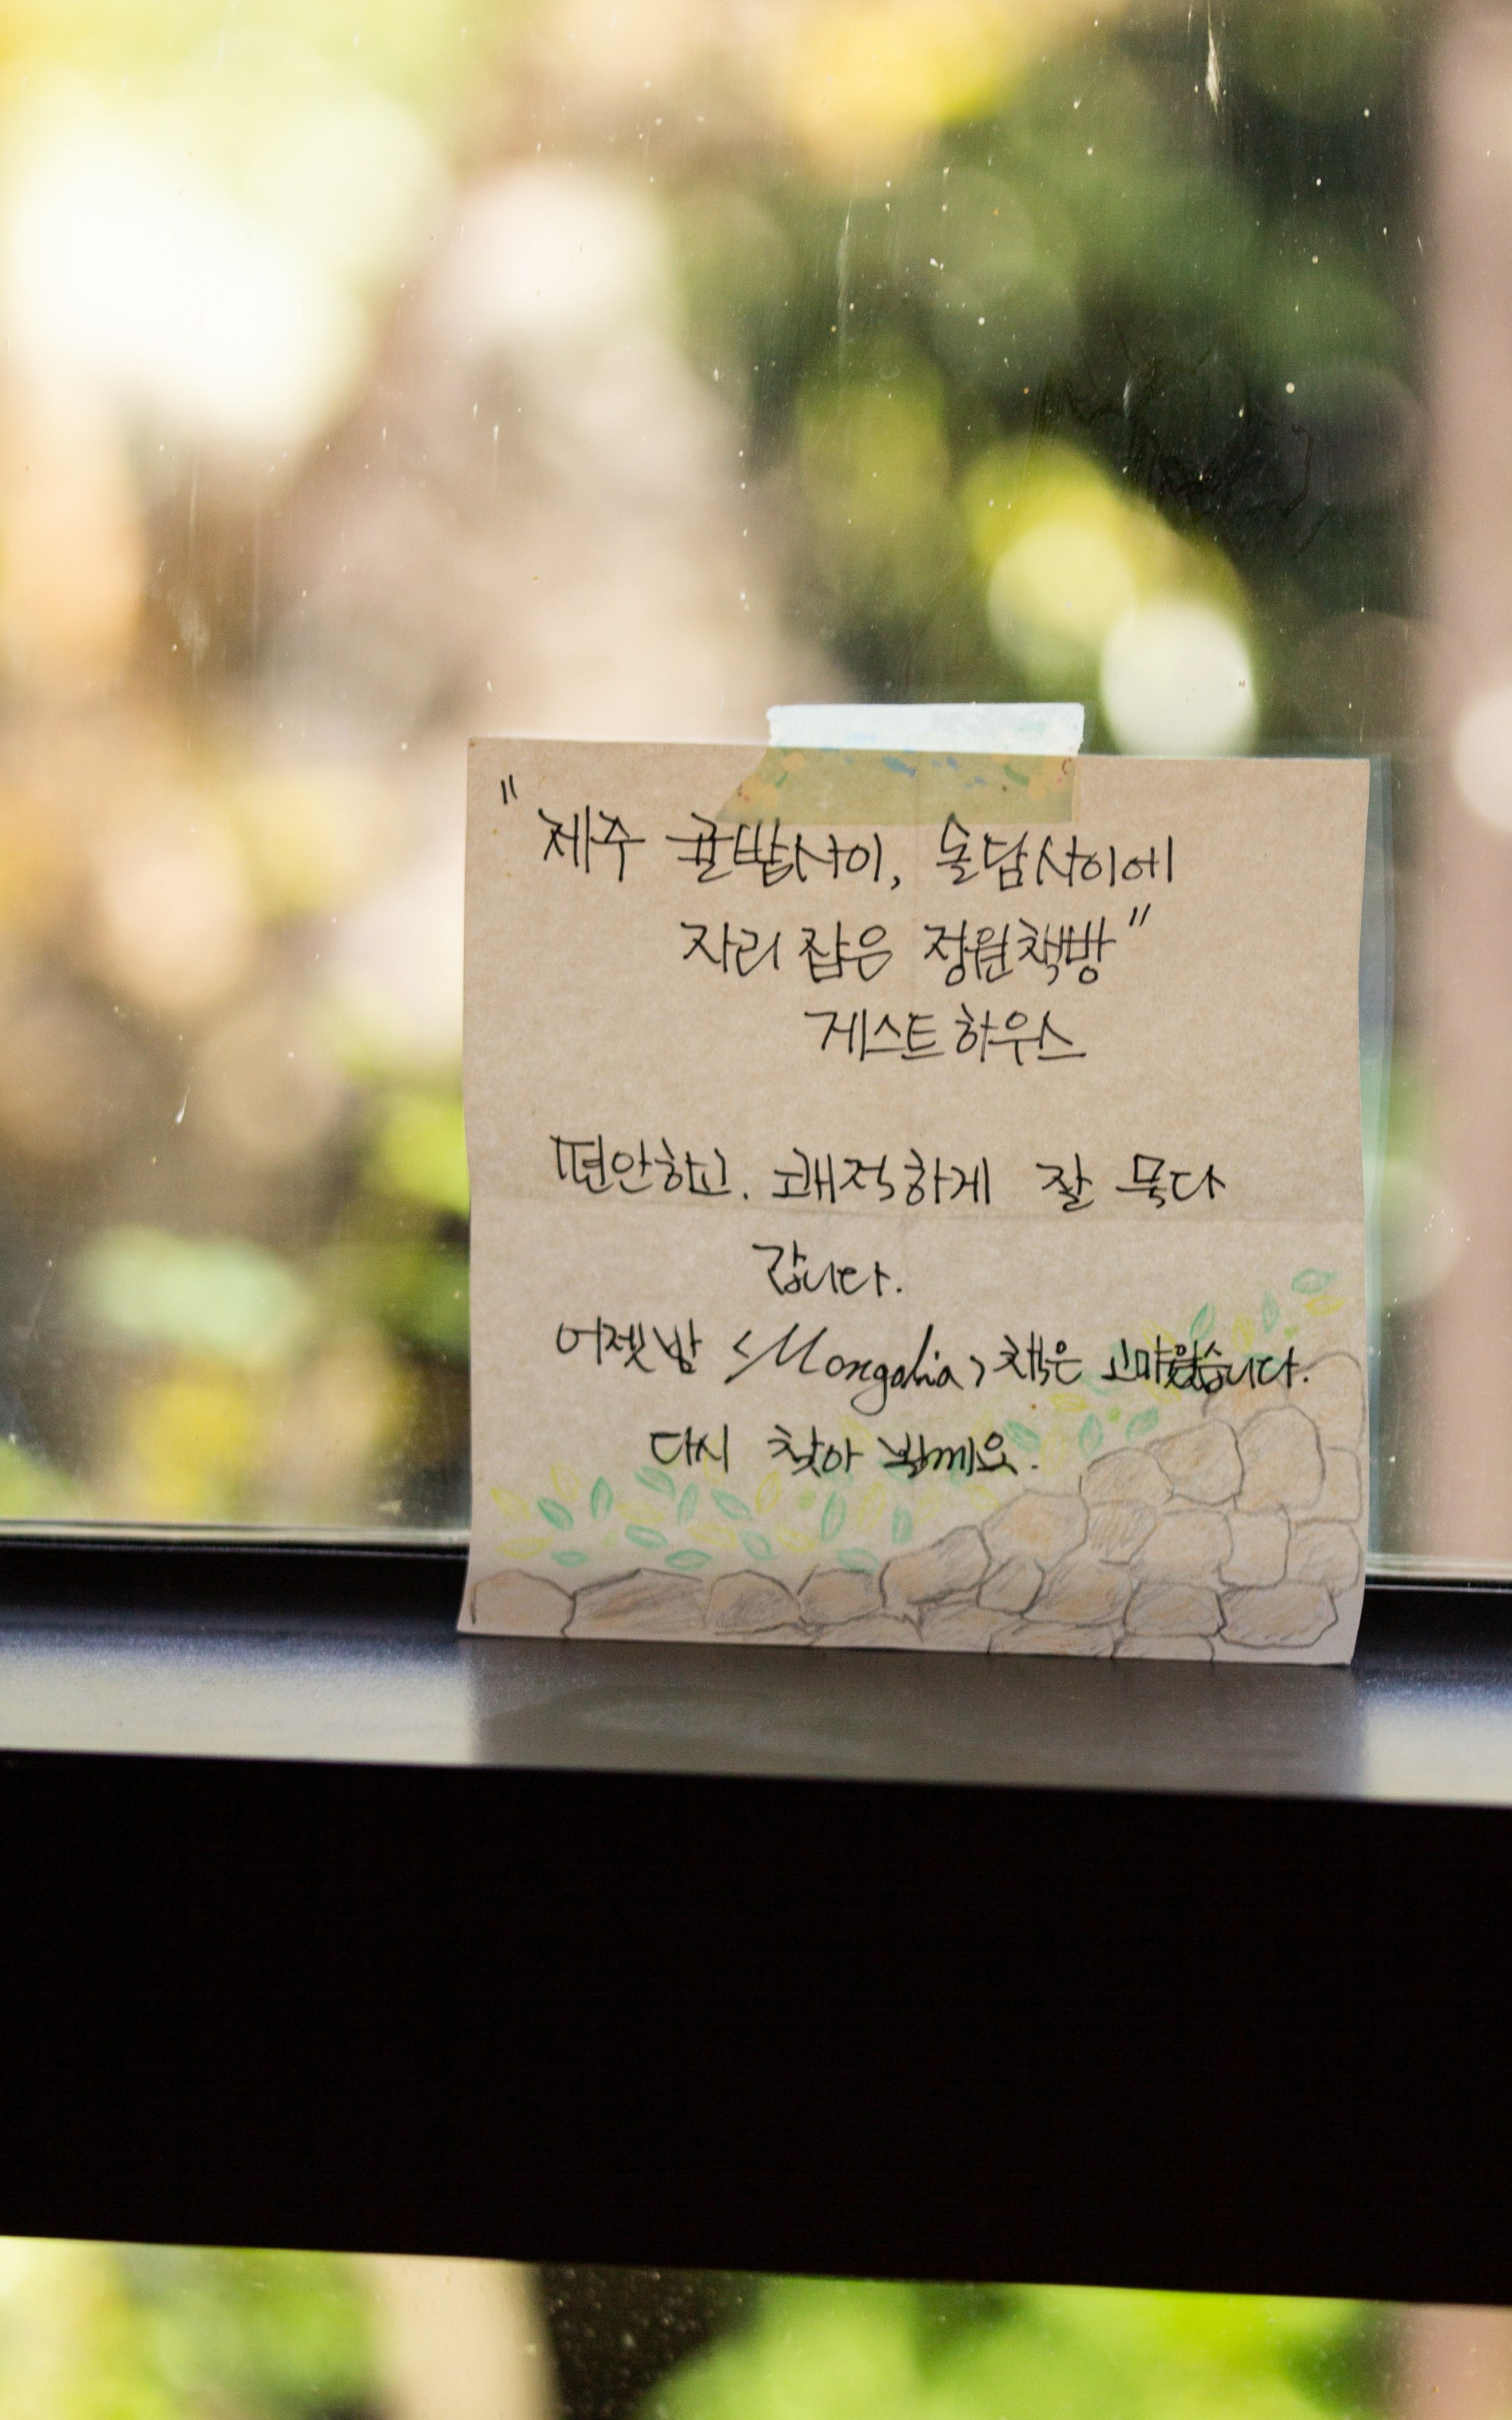 "제주 귤밭사이, 돌담사이에
자리 잡은 정원책방"
게스트하우스
편안하고. 쾌적하게 잘 묵다
갑니다.
어젯밤 <Mongolia> 책은 고마웠습니다.
다시 찾아 뵐께요.